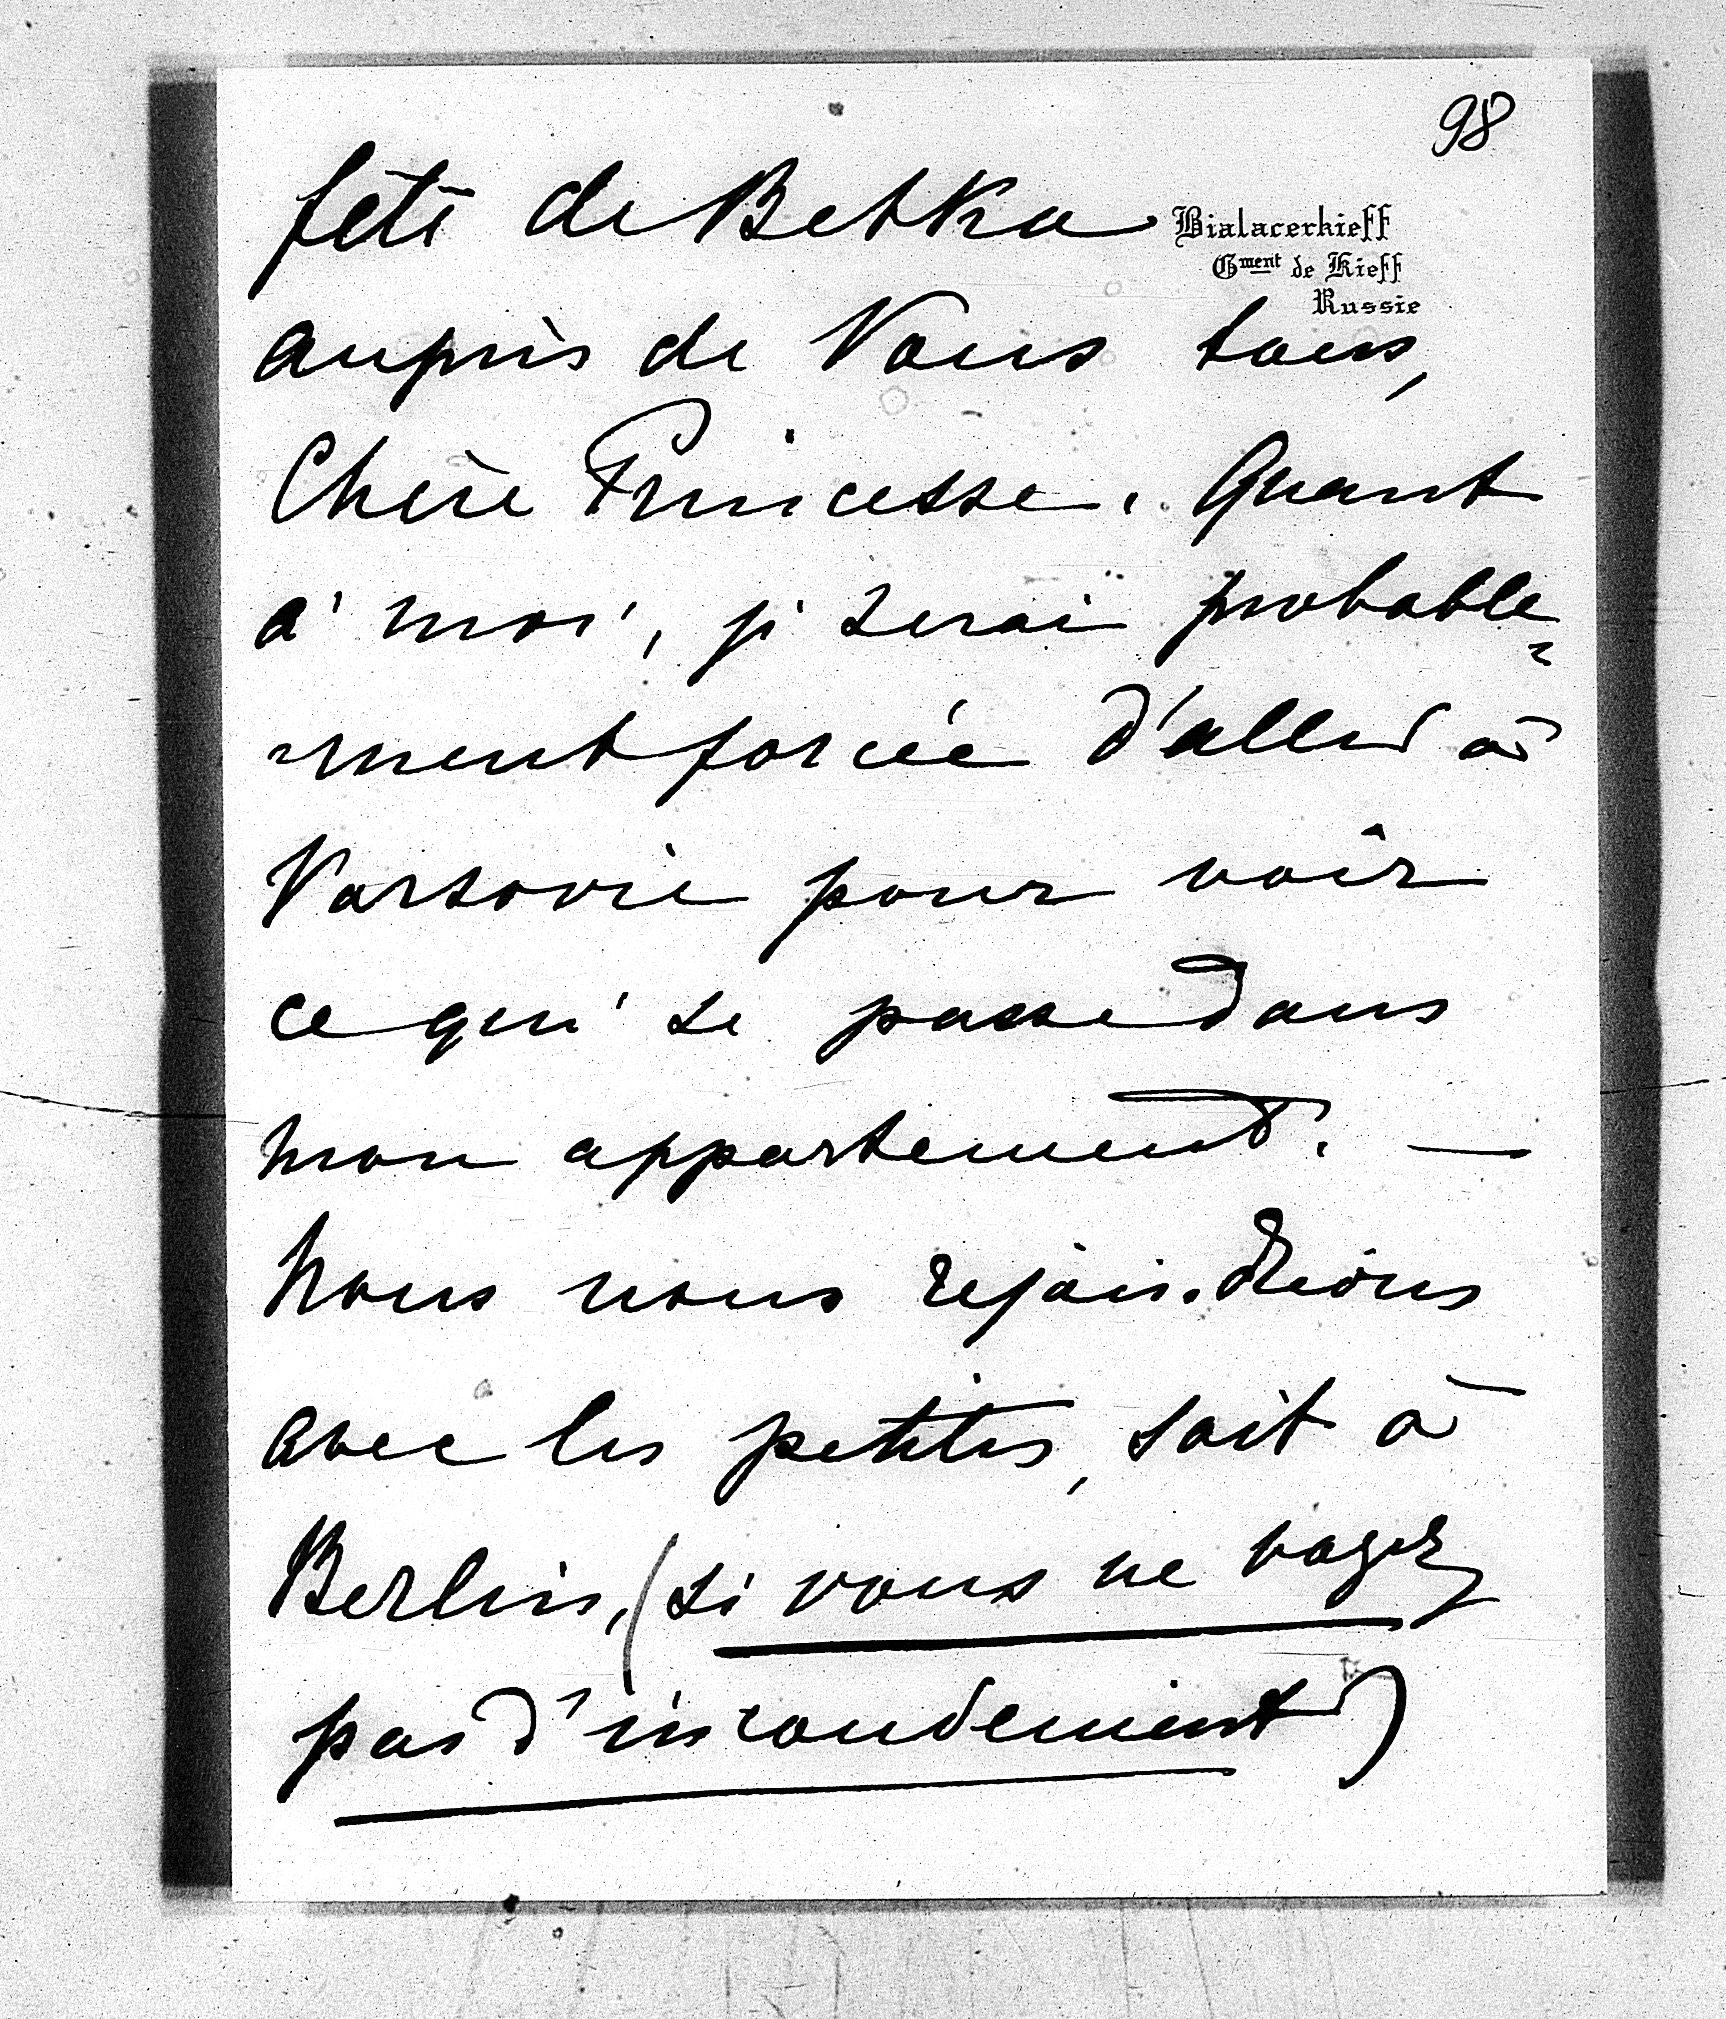 98
Bialacerkieff
Gment de Kieff
Russie
fête de Betka
auprès de Vous tous,
Chère Princesse. Quant
à moi, je serai probable=
ment forcée d'aller à
Varsovie pour voir
ce qui se passe dans
mon appartement. —
Nous nous rejoindrions
avec les petites, soit à
Berlin, (si vous ne voyez
pas d'incondement)